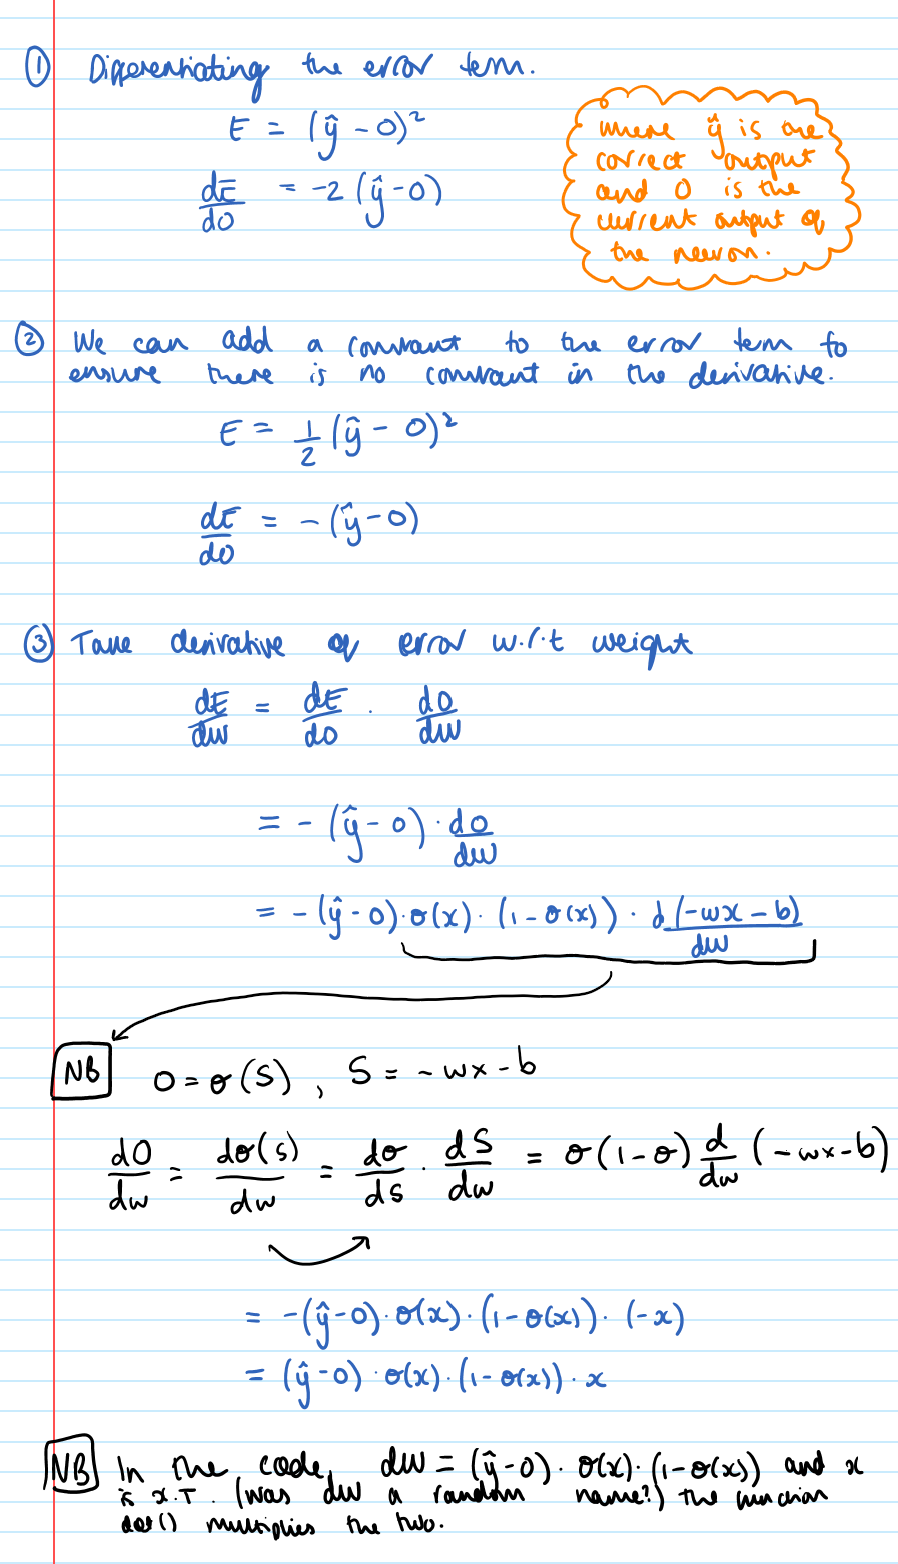 ① Differentiating the error term.
E = (ŷ - O)²
dE/dO = -2 (ŷ - O)
where ŷ is the
correct output
and O is the
current output of
the neuron.
② We can add a constant to the error term to
ensure there is no constant in the derivative.
E = 1/2 (ŷ - O)²
dE/dO = - (ŷ - O)
③ Take derivative of error w.r.t weight
dE/dw = dE/dO · dO/dw
= - (ŷ - O) · dO/dw
= - (ŷ - O) · σ(x) · (1 - σ(x)) · d(-wx - b)/dw
NB O = σ(S), S = -wx - b
dO/dw = dσ(s)/dw = dσ/ds · dS/dw = σ(1 - σ) d/dw (-wx - b)
= -(ŷ - O) · σ(x) · (1 - σ(x)) · (-x)
= (ŷ - O) · σ(x) · (1 - σ(x)) · x
NB In the code, dw = (ŷ - O) · σ(x) · (1 - σ(x)) and x
is x.T. (was dw a random name?) the function
dot() multiplies the two.